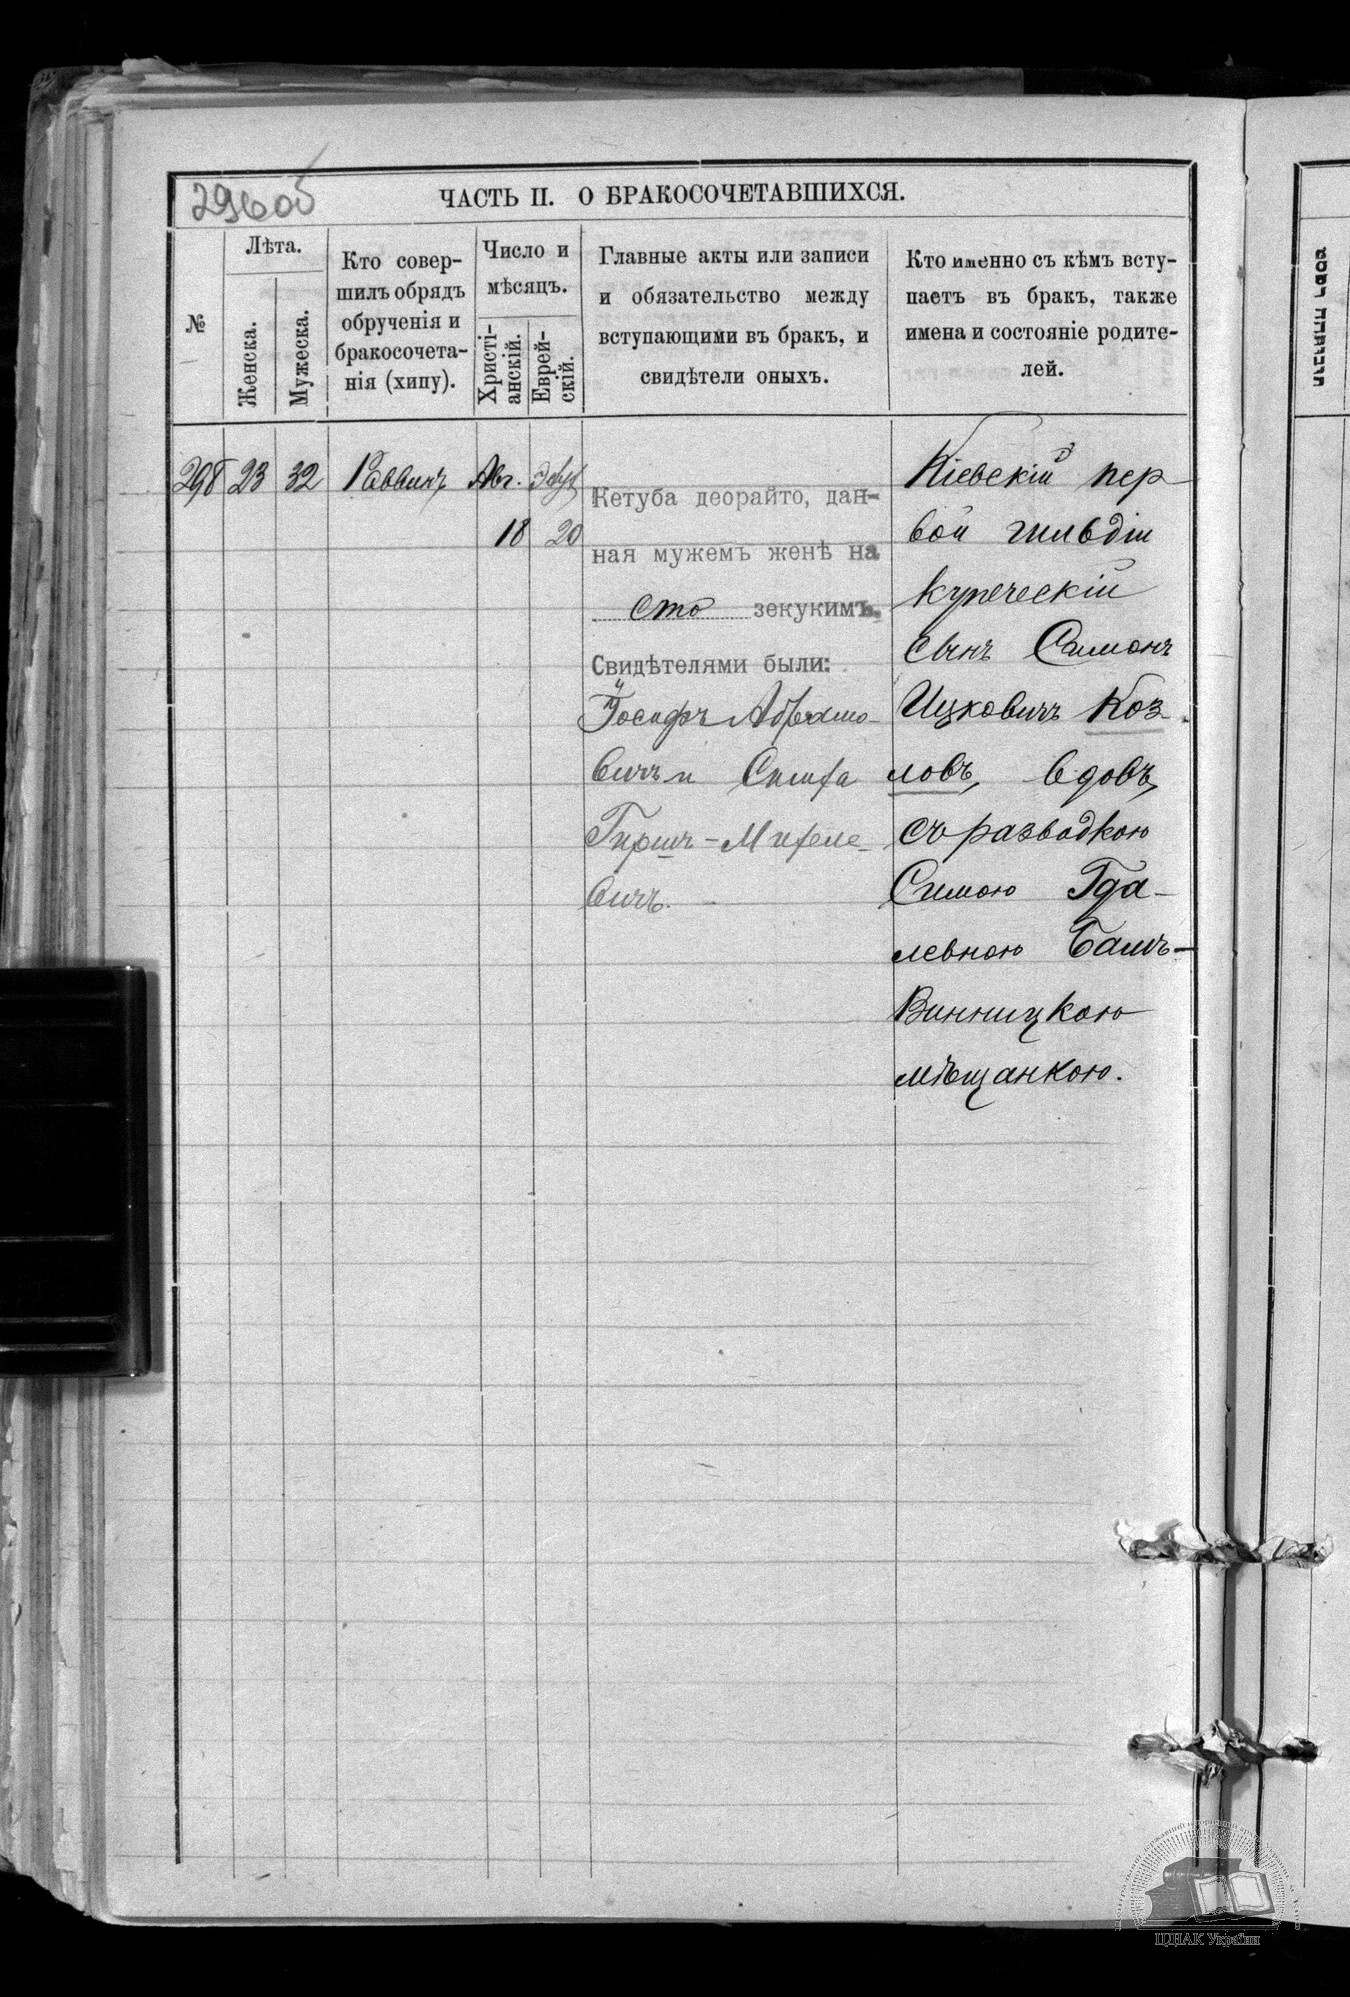 296об
ЧАСТЬ II. О БРАКОСОЧЕТАВШИХСЯ.
№
Лѣта.
Женска.
Мужеска.
Кто совер-
шилъ обрядъ
обрученія и
бракосочета-
нія (хипу).
Число и
мѣсяцъ.
Христі-
анскій.
Еврей-
скій.
Главные акты или записи
и обязательство между
вступающими въ бракъ, и
свидѣтели оныхъ.
Кто именно съ кѣмъ всту-
паетъ въ бракъ, также
имена и состояніе родите-
лей.
298 23 32 Раввинъ Авг.
18 20
Кетуба деорайто, дан-
ная мужемъ женѣ на
сто зекукимъ.
Свидѣтелями были:
Іосифъ Абрамо-
вичъ и
Гиршъ-Михеле-
вичъ.
Кіевскій пер
вой гильдіи
купеческій
сынъ Самсонъ
Ицковичъ Коз
ловъ, вдовъ,
съ разводкою
Симою Гда-
левною Башъ-
Винницкою
мѣщанкою.
ЦДІАК України